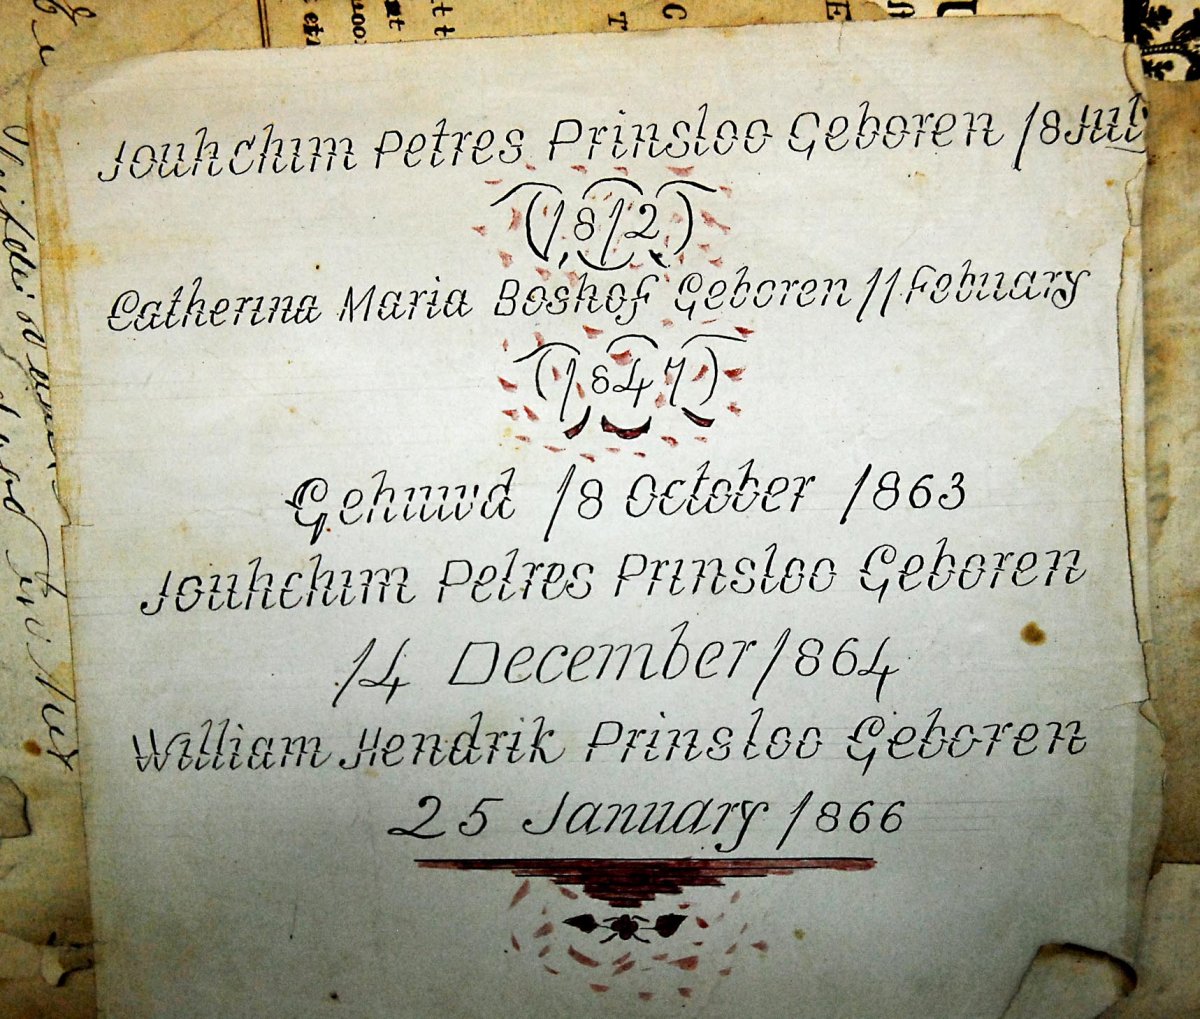 Jouhchim Petres Prinsloo Geboren 18 July
(1812)
Catherina Maria Boshof Geboren 11 Febuary
(1847)
Gehuwd 18 October 1863
Jouhchim Petres Prinsloo Geboren
14 December 1864
William Hendrik Prinsloo Geboren
25 January 1866